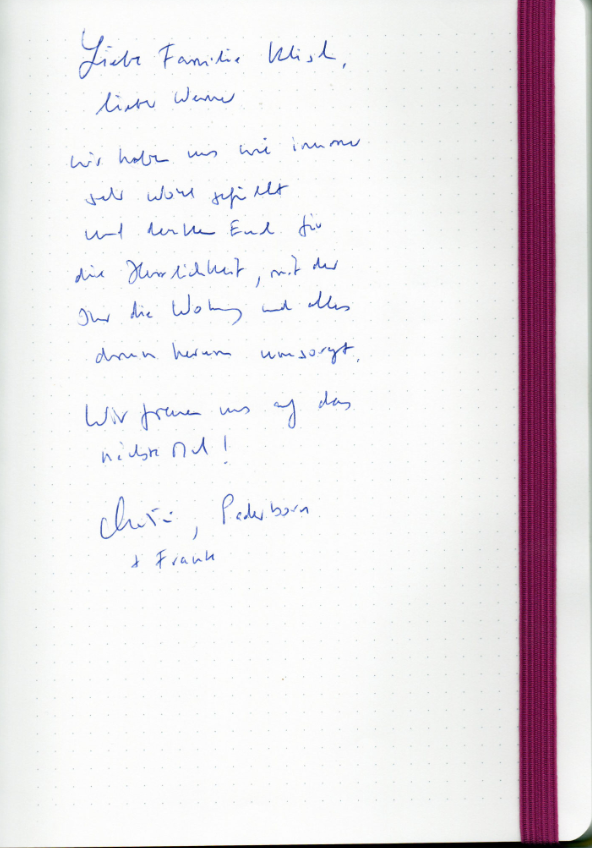 Liebe Familie
lieber Werner
wir haben uns wie immer
sehr wohl gefühlt
und danken Euch für
die Herzlichkeit, mit der
Ihr die Wohnung und alles
drum herum umsorgt.
Wir freuen uns auf das
nächste Mal!
Paderborn
+ Frank